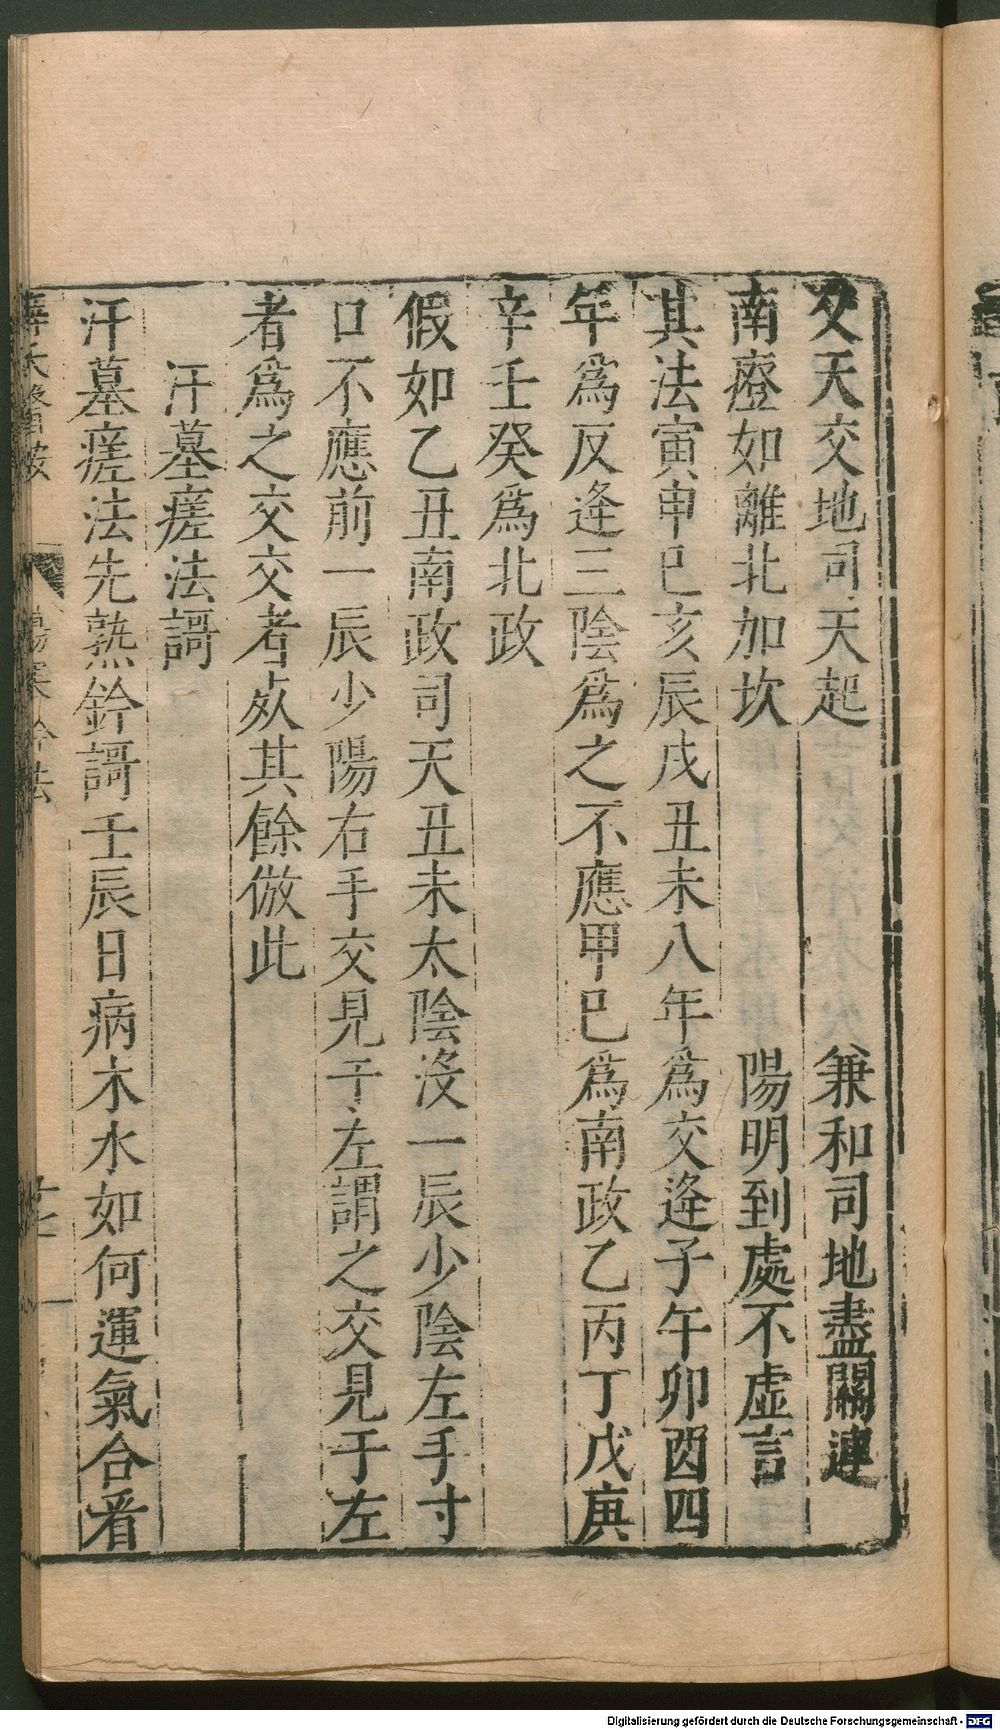 又天交地司天起　兼和司地盡關連
南蹬如離北加坎　陽明到處不虚言
其法寅申巳亥辰戌丑未八年爲交逢子午卯酉四
年爲反逢三陰爲之不應甲巳爲南政乙丙丁戊庚
辛壬癸爲北政
假如乙丑南政司天丑未太陰沒一辰少陰左手寸
口不應前一辰少陽右手交見于左謂之交見于左
者爲之交交者死其餘倣此
汗墓瘥法謌
汗墓瘥法先熟鈐謌壬辰日病木水如何運氣合看
Digitalisierung gefördert durch die Deutsche Forschungsgemeinschaft - DFG